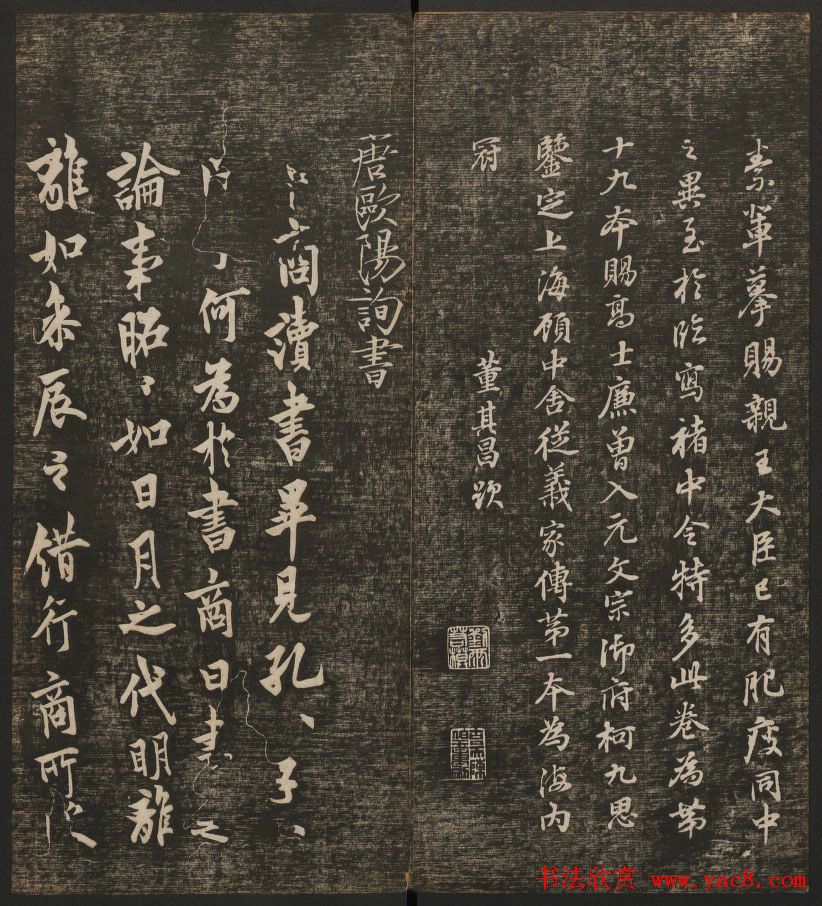 素輩摹賜親王大臣已有肥瘦同中
之異至於臨寫褚中令特多此卷為第
十九本賜高士廉曾入元文宗御府柯九思
鑒定上海顧中舍從義家傳第一本為海內
冠
董其昌跋
唐歐陽詢書
商讀書畢見孔〻子〻
何為於書商曰書之
論事昭〻如日月之代明離
離如參辰之錯行商所
书法欣赏 www.yac8.com